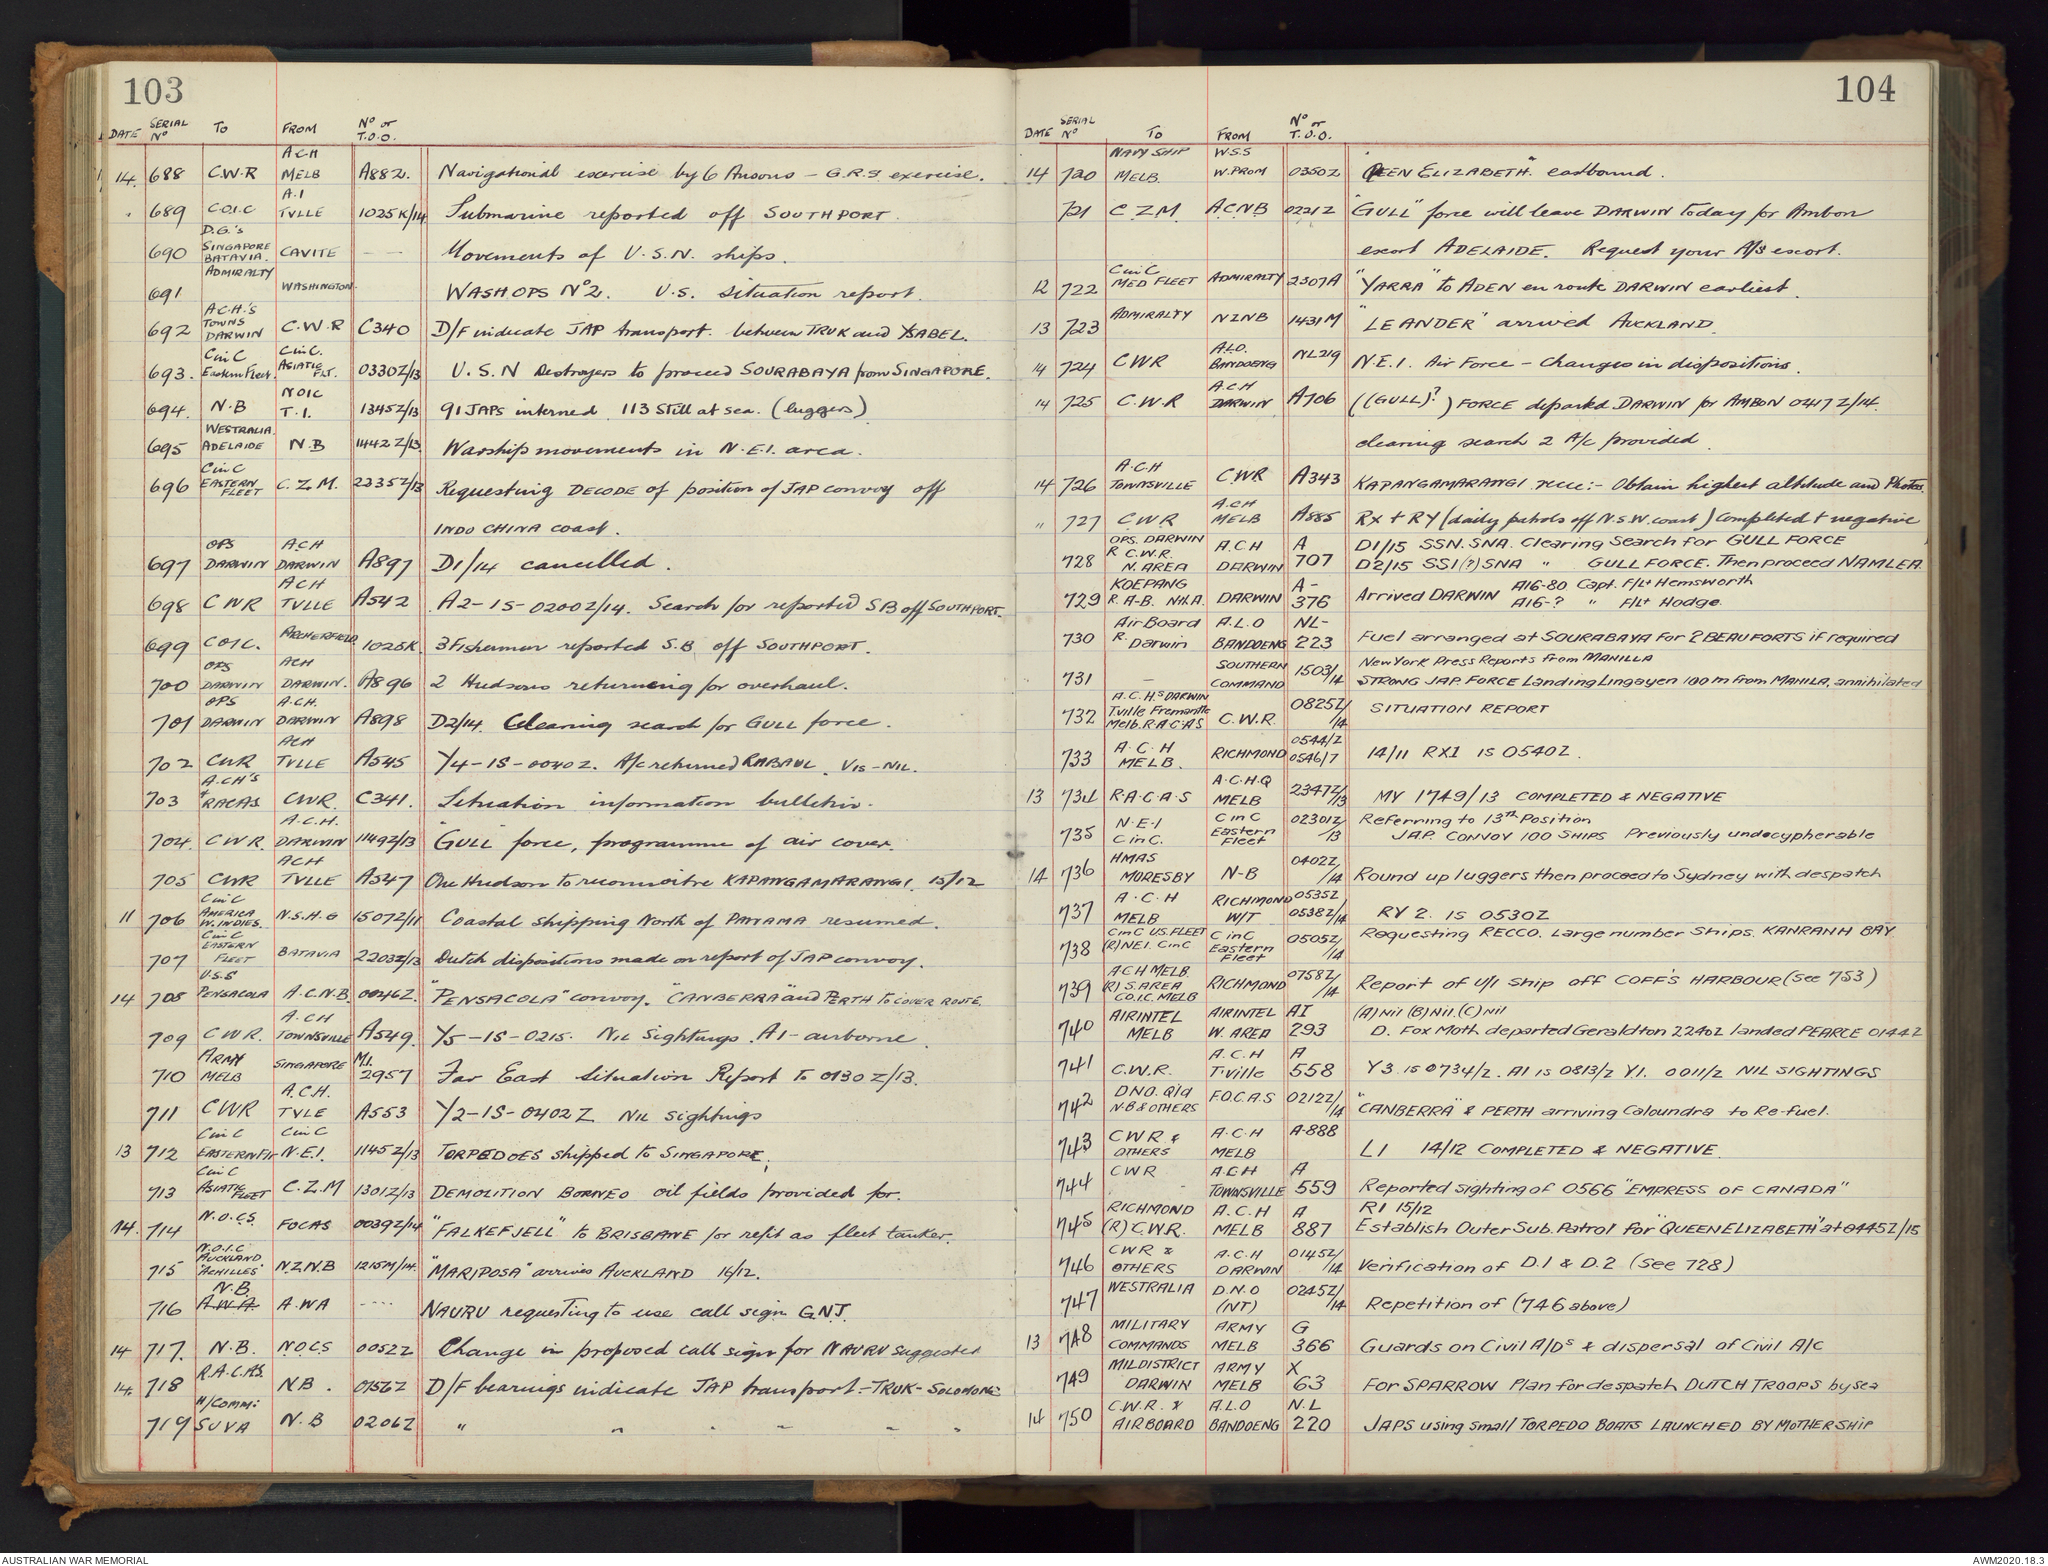 103
DATE SERIAL No TO FROM No or T.O.O.
14. 688 C.W.R ACH MELB A882. Navigational exercise by 6 Ansons - G.R.S exercise.
" 689 C.O.I.C A.I TVLLE 1025K/14 Submarine reported off SOUTHPORT.
690 D.G.'s SINGAPORE BATAVIA. CAVITE ---- Movements of U.S.N. ships.
691 ADMIRALTY WASHINGTON WASHOPS No2. U.S. situation report.
692 A.C.H.'S TOWNS DARWIN C.W.R C340 D/F indicate JAP transport between TRUK and YSABEL.
693. CinC Eastern Fleet. CinC. ASIATIC FLT. 0330Z/13 U.S.N Destroyers to proceed SOURABAYA from SINGAPORE.
694. N.B NOIC T.I. 1345Z/13 91 JAPS interned. 113 still at sea. (luggers)
695 WESTRALIA. ADELAIDE N.B 1442Z/13 Warship movements in N.E.I. area.
696 CinC EASTERN FLEET C.Z.M. 2235Z/13 Requesting DECODE of position of JAP convoy off
INDO CHINA coast.
697 OPS DARWIN A.C.H DARWIN A897 D1/14 cancelled.
698 CWR ACH TVLLE A542 A2-1S-0200Z/14. Search for reported SB off SOUTHPORT.
699 COIC. ARCHERFIELD 1025K. 3 Fishermen reported S.B. off SOUTHPORT.
700 OPS DARWIN ACH DARWIN. A896 2 Hudsons returning for overhaul.
701 OPS DARWIN A.C.H. DARWIN A898 D2/14. Clearing search for GULL force.
702 CWR ACH TVLLE A545 Y4-1S-0040Z. A/c returned RABAUL. VIS-NIL.
703 A.CH'S + RACAS CWR. C341. Situation information bulletin.
704. CWR. A.C.H. DARWIN 1149Z/13 "GULL" force, programme of air cover.
705 CWR ACH TVLLE A547 One Hudson to reconnoitre KAPANGAMARANGI. 15/12
11 706 CinC AMERICA W.INDIES. N.S.H.Q 1507Z/11 Coastal shipping North of PANAMA resumed.
707 CinC EASTERN FLEET BATAVIA 2203Z/13 Dutch dispositions made on report of JAP convoy.
14 708 U.S.S PENSACOLA A.C.N.B. 0046Z. "PENSACOLA" convoy. "CANBERRA" and PERTH to COVER ROUTE.
709 C.W.R. A.CH TOWNSVILLE A549. Y5-1S-0215. NIL sightings. A1-airborne.
710 ARMY MELB SINGAPORE M.I. 2957 Far East Situation Report to 0130Z/13.
711 CWR A.C.H. TVLE A553 Y2-1S-0402Z NIL sightings
13 712 CinC EASTERN Flt CinC N.E.I. 1145Z/13 TORPEDOES shipped to SINGAPORE.
713 CinC ASIATIC FLEET C.Z.M 1301Z/13 DEMOLITION BORNEO oil fields provided for.
14. 714 N.O.C.S. FOCAS 0039Z/14 "FALKEFJELL" to BRISBANE for refit as fleet tanker.
715 N.O.I.C AUCKLAND "ACHILLES" N.Z.N.B 1215M/14. "MARIPOSA" arrives AUCKLAND 16/12.
716 N.B. A.W.A A.WA ---- NAURU requesting to use call sign GNJ.
14 717. N.B. N.O.C.S 0052Z Change in proposed call sign for NAURU suggested
14. 718 R.A.C.A.S. NB. 0156Z D/F bearings indicate JAP transport - TRUK - SOLOMONS
719 H/COMM: SUVA N.B 0206Z " " " " " "
104
DATE SERIAL No TO FROM No or T.O.O.
14 720 NAVY SHIP MELB. W.S.S W.PROM 0350Z "QEEN ELIZABETH". eastbound.
721 C.Z.M. A.C.N.B 0221Z "GULL" force will leave DARWIN today for Ambon
escort ADELAIDE. Request your A/S escort.
12 722 CinC MED FLEET ADMIRALTY 2307A "YARRA" to ADEN en route DARWIN earliest.
13 723 ADMIRALTY NZNB 1431M "LEANDER" arrived AUCKLAND.
14 724 CWR A.L.O. BANDOENG NL219 N.E.I. Air Force - Changes in dispositions.
14 725 C.W.R A.C.H DARWIN A706 ((GULL)?) FORCE departed DARWIN for AMBON 0417Z/14.
clearing search 2 A/c provided.
14 726 A.C.H TOWNSVILLE CWR A343 KAPANGAMARANGI recce:- Obtain highest altitude and Photos.
" 727 CWR A.C.H MELB A885 RX + RY (daily patrols off N.S.W. coast) Completed + negative
728 OPS. DARWIN R C.W.R. N.AREA A.C.H DARWIN A 707 D1/15 SSN. SNA. Clearing Search for GULL FORCE
D2/15 SS1(?) SNA " GULL FORCE. Then proceed NAMLEA.
729 KOEPANG R.A-B. NW.A. DARWIN A- 376 Arrived DARWIN A16-80 Capt. F/Lt Hemsworth
A16-? " F/Lt Hodge.
730 AirBoard R. Darwin A.L.O BANDOENG NL- 223 Fuel arranged at SOURABAYA for 2 BEAUFORTS if required
731 - SOUTHERN COMMAND 1503/14 New York Press Reports from MANILLA
STRONG JAP. FORCE Landing Lingayen 100 m from MANILA, annihilated
732 A.C.H.s DARWIN Tville Fremantle Melb. R.A.C.A.S C.W.R. 0825Z/14 SITUATION REPORT
733 A.C.H MELB. RICHMOND 0544/Z 0546/7 14/11 RX1 IS 0540Z.
13 734 R.A.C.A.S A.C.H.Q MELB 2347Z/13 MY 1749/13 COMPLETED & NEGATIVE
735 N.E.I CinC. CinC Eastern Fleet 02301Z/13 Referring to 13th Position
JAP. CONVOY 100 SHIPS Previously undecypherable
14 736 HMAS MORESBY N-B 0402Z/14 Round up luggers then proceed to Sydney with despatch
737 A.C.H MELB RICHMOND W/T 0535Z 0538Z/14 RY 2. IS 0530Z
738 CinC US. FLEET (R) NEI. CinC CinC Eastern Fleet 0505Z/14 Requesting RECCO. Large number ships. KANRANH BAY.
739 ACH MELB. (R) S.AREA CO.I.C. MELB RICHMOND 0758Z/14 Report of U/I ship off COFF'S HARBOUR (See 753)
740 AIRINTEL MELB AIRINTEL W. AREA AI 293 (A) Nil (B) Nil. (C) Nil
D. Fox Moth departed Geraldton 2240Z landed PEARCE 0144Z
741 C.W.R. A.C.H T'ville A 558 Y3 IS 0734/Z. A1 IS 0813/Z Y.1. 0011/Z NIL SIGHTINGS
742 DNO. Qld N-B & OTHERS F.O.C.A.S 0212Z/14 "CANBERRA" & PERTH arriving Caloundra to Re-fuel.
743 CWR & OTHERS A.C.H MELB A-888 L1 14/12 COMPLETED & NEGATIVE.
744 CWR A.C.H TOWNSVILLE A 559 Reported sighting of 0566 "EMPRESS OF CANADA"
745 RICHMOND (R) C.W.R. A.C.H MELB A 887 R1 15/12
Establish Outer Sub. Patrol for "QUEEN ELIZABETH" at 0445Z/15
746 CWR & OTHERS A.C.H DARWIN 0145Z/14 Verification of D.1 & D.2 (See 728)
747 WESTRALIA D.N.O (NT) 0245Z/14 Repetition of (746 above)
13 748 MILITARY COMMANDS ARMY MELB G 366 Guards on Civil A/Ds & dispersal of Civil A/C
749 MILDISTRICT DARWIN ARMY MELB X 63 For SPARROW Plan for despatch DUTCH TROOPS by sea
14 750 C.W.R. & AIRBOARD A.L.O BANDOENG N.L 220 JAPS using small TORPEDO BOATS LAUNCHED BY MOTHER SHIP
AUSTRALIAN WAR MEMORIAL
AWM2020.18.3